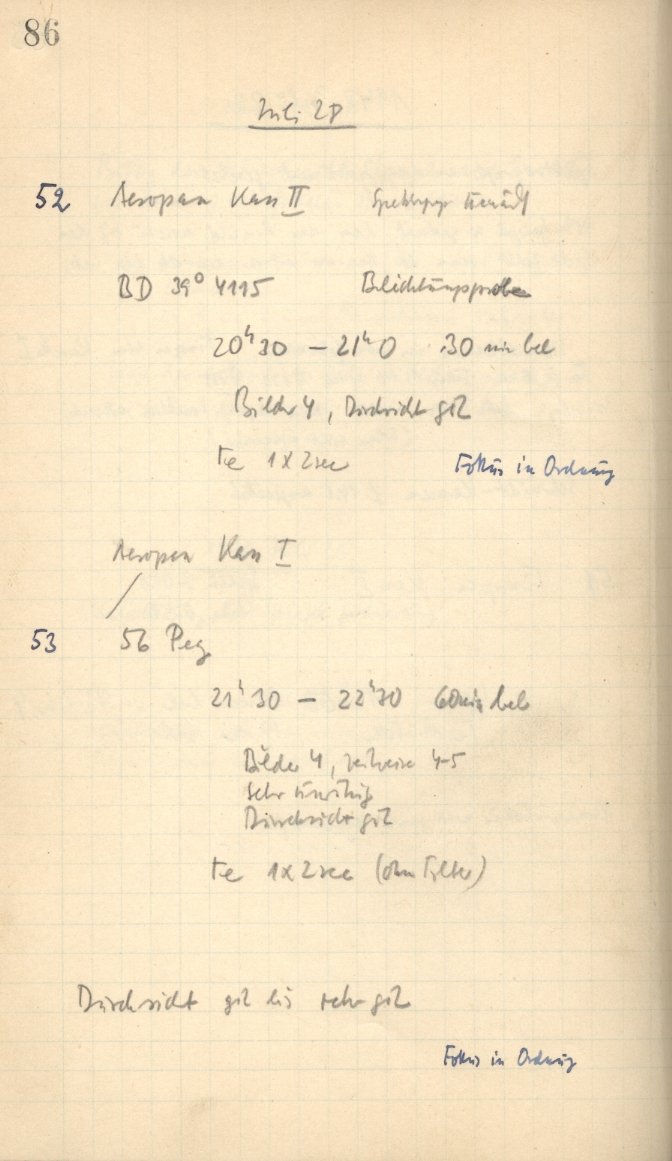 86
Juli 28
52 Aeropan Kass II
BD 39° 4115 Belichtungsprobe
20ʰ30 – 21ʰ0 30 min bel
Bilder 4, Durchsicht gut
Fe 1x2sec Fokus in Ordnung
Aeropan Kass I
53 56 Peg
21ʰ30 – 22ʰ30 60min bel
Bilder 4, zeitweise 4-5
sehr unruhig
Durchsicht gut
Fe 1x2sec (ohne Filter)
Durchsicht gut bis sehr gut
Fokus in Ordnung